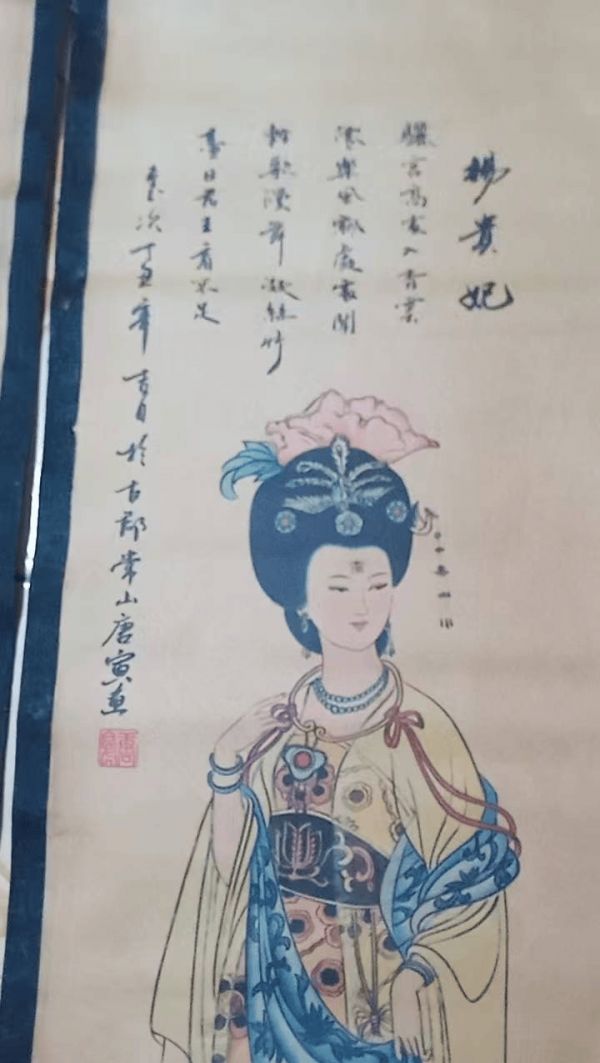 楊貴妃
驪宮高處入青雲
樂風飄處處聞
歌漫舞凝絲竹
盡日君王看不足
歲次丁丑年吉日於古郡常山唐寅畫